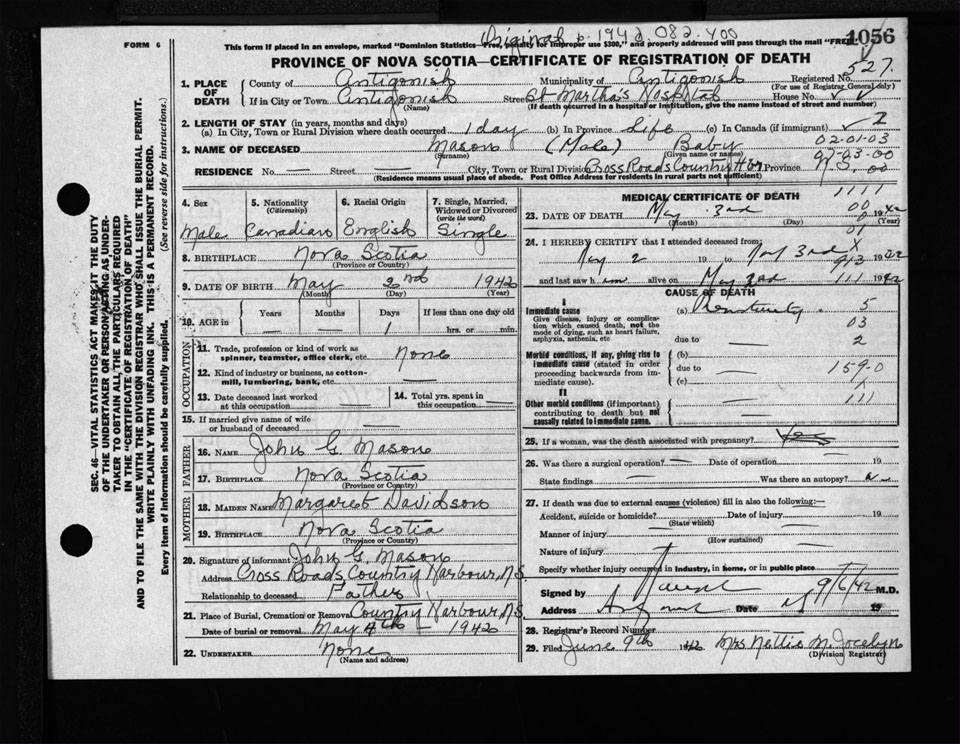 Original p 1942.082.400
FORM 6
This form if placed in an envelope, marked "Dominion Statistics—Free, penalty for improper use $300," and properly addressed will pass through the mail "FREE"
1056
PROVINCE OF NOVA SCOTIA—CERTIFICATE OF REGISTRATION OF DEATH
1. PLACE OF DEATH
County of Antigonish Municipality of Antigonish Registered No. 527.
(For use of Registrar General only)
If in City or Town Antigonish Street St Martha's Hospital House No.
(Name) (If death occurred in a hospital or institution, give the name instead of street and number)
2. LENGTH OF STAY (in years, months and days)
(a) In City, Town or Rural Division where death occurred 1 day (b) In Province Life (c) In Canada (if immigrant)
02-01-03
3. NAME OF DECEASED Mason (Male) Baby
(Surname) (Given name or names)
97-03-00
RESIDENCE No. — Street — City, Town or Rural Division Cross Roads Country Hbr Province N.S.
(Residence means usual place of abode. Post Office Address for residents in rural parts not sufficient)
4. Sex
Male
5. Nationality
(Citizenship)
Canadian
6. Racial Origin
English
7. Single, Married, Widowed or Divorced
(write the word)
Single
8. BIRTHPLACE Nova Scotia
(Province or Country)
9. DATE OF BIRTH May 2nd 1942
(Month) (Day) (Year)
10. AGE in
Years Months Days If less than one day old
— — 1 hrs. or min.
OCCUPATION
11. Trade, profession or kind of work as spinner, teamster, office clerk, etc. None
12. Kind of industry or business, as cotton-mill, lumbering, bank, etc. —
13. Date deceased last worked at this occupation —
14. Total yrs. spent in this occupation —
15. If married give name of wife or husband of deceased —
FATHER
16. NAME John G. Mason
17. BIRTHPLACE Nova Scotia
(Province or Country)
MOTHER
18. MAIDEN NAME Margaret Davidson
19. BIRTHPLACE Nova Scotia
(Province or Country)
20. Signature of informant John G. Mason
Address Cross Roads Country Harbour, N.S.
Relationship to deceased Father
21. Place of Burial, Cremation or Removal Country Harbour, N.S.
Date of burial or removal May 4th — 1942
22. UNDERTAKER None
(Name and address)
MEDICAL CERTIFICATE OF DEATH
1111
23. DATE OF DEATH May 3rd 1942
(Month) (Day) (Year)
24. I HEREBY CERTIFY that I attended deceased from:
May 2 19 to May 3rd 1942
and last saw him alive on May 3rd 1942
CAUSE OF DEATH
I
Immediate cause
Give disease, injury or complication which caused death, not the mode of dying, such as heart failure, asphyxia, asthenia, etc
(a) Prematurity. 5
03
due to 2
Morbid conditions, if any, giving rise to immediate cause (stated in order proceeding backwards from immediate cause).
(b)
due to 159-0
(c)
II
Other morbid conditions (if important) contributing to death but not causally related to immediate cause.
111
25. If a woman, was the death associated with pregnancy? Yes
26. Was there a surgical operation? — Date of operation 19
State findings — Was there an autopsy? No
27. If death was due to external causes (violence) fill in also the following:—
Accident, suicide or homicide? Date of injury 19
(State which)
Manner of injury
(How sustained)
Nature of injury
Specify whether injury occurred in Industry, in home, or in public place
Signed by M.D.
Address Antigonish Date 9/6/42 19
28. Registrar's Record Number
29. Filed June 9th 1942 Mrs Nettie M. Jocelyn
(Division Registrar)
SEC. 46—VITAL STATISTICS ACT MAKES IT THE DUTY
OF THE UNDERTAKER OR PERSON ACTING AS UNDER-
TAKER TO OBTAIN ALL THE PARTICULARS REQUIRED
IN THE "CERTIFICATE OF REGISTRATION OF DEATH"
AND TO FILE THE SAME WITH THE DIVISION REGISTRAR WHO SHALL ISSUE THE BURIAL PERMIT.
WRITE PLAINLY WITH UNFADING INK. THIS IS A PERMANENT RECORD.
Every item of information should be carefully supplied. (See reverse side for instructions.)